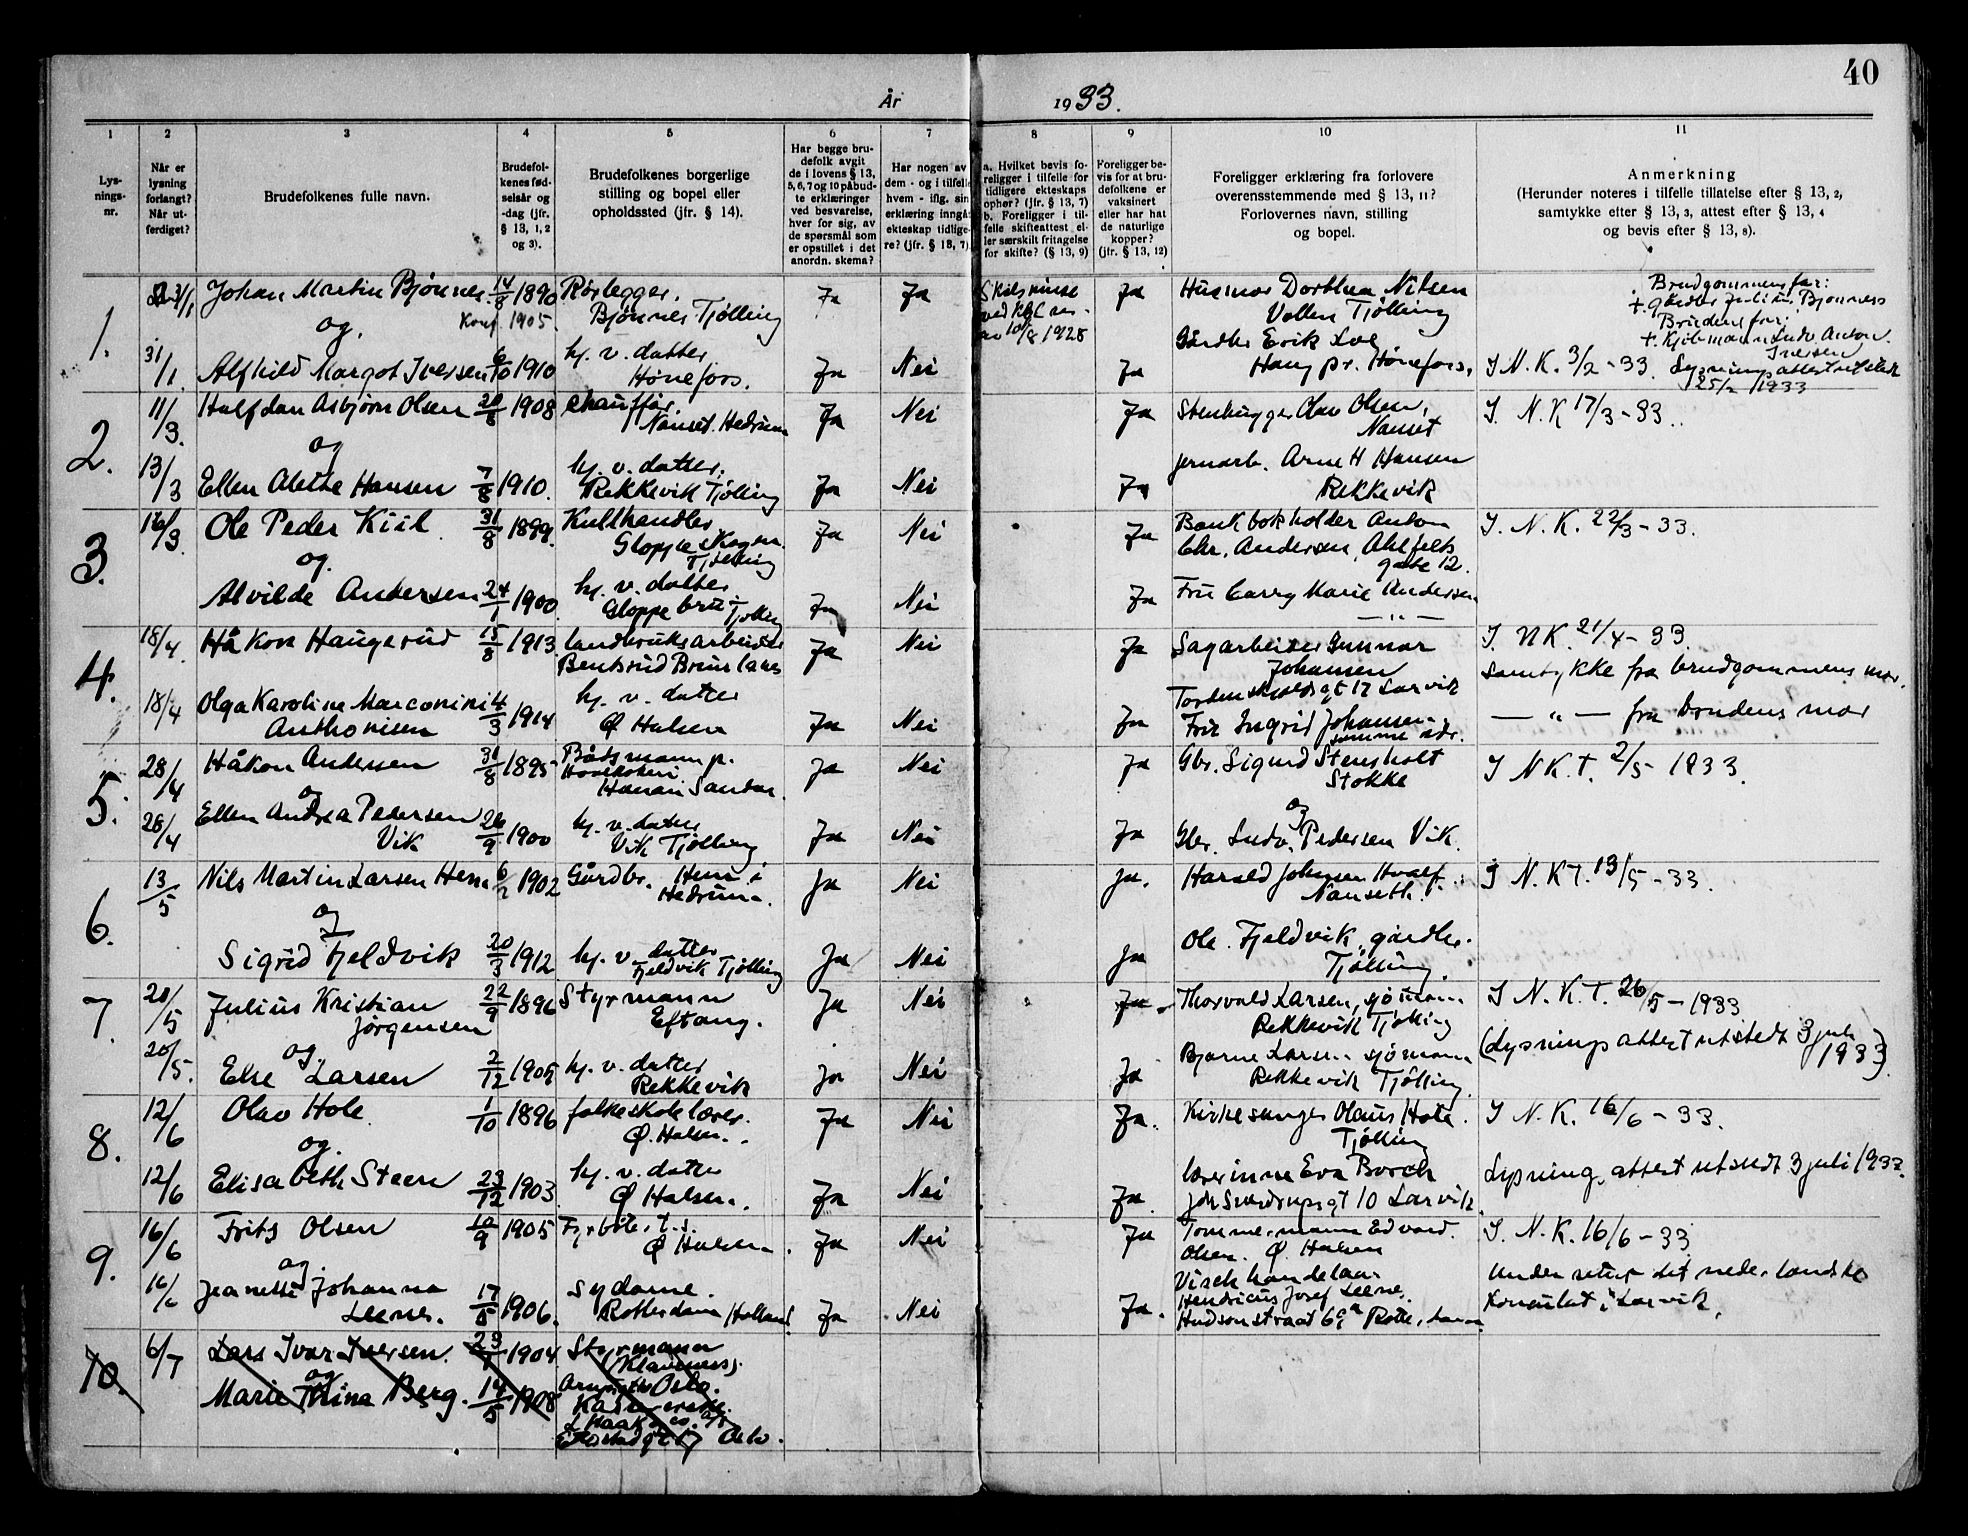 40
År 1933.
1 2 3 4 5 6 7 8 9 10 11
Lys-
nings-
nr.
Når er
lysning
forlangt?
Når ut-
ferdiget?
Brudefolkenes fulle navn.
Brudefol-
kenes fød-
selsår og
-dag (jfr.
§ 13, 1, 2
og 3).
Brudefolkenes borgerlige
stilling og bopel eller
opholdssted (jfr. § 14).
Har begge bru-
defolk avgit
de i lovens § 13,
5, 6, 7 og 10 påbud-
te erklæringer
ved besvarelse,
hver for sig, av
de spørsmål som
er opstillet i det
anordn. skema?
Har nogen av
dem - og i tilfelle
hvem - iflg. sin
erklæring inngå
ekteskap tidlige-
re? (jfr. § 13, 7).
a. Hvilket bevis fo-
religger i tilfelle for
tidligere ekteskaps
ophør? (jfr. § 13, 7)
b. Foreligger i til-
felle skifteattest el-
ler særskilt fritagelse
for skifte? (§ 13, 9)
Foreligger be-
vis for at bru-
defolkene er
vaksinert
eller har hat
de naturlige
kopper?
(jfr. § 13, 12)
Foreligger erklæring fra forlovere
overensstemmende med § 13, 11?
Forlovernes navn, stilling
og bopel.
Anmerkning
(Herunder noteres i tilfelle tillatelse efter § 13, 2,
samtykke efter § 13, 3, attest efter § 13, 4
og bevis efter § 13, 8).
1. 31/1 Johan Martin Bjønnes 14/8 1890 Rørlegger. Ja Ja Skilsmisse Ja Husmor Dorthea Nilsen Brudgommens far:
Konf. 1905. Bjønnes Tjølling 10/8 1928 Vollen Tjølling + Julius Bjønness
og. Gårdbr Erik Loe Brudens far:
+ Kjøbmann Ludv. Anton
Iversen
31/1. Alfhild Margot Iversen 6/10 1910 hj. v. datter Hønefoss. Ja Nei Ja Haug pr. Hønefoss. I N. K. 3/2 - 33. Lysningsattest utstedt
25/2 1933
2. 11/3. Halfdan Asbjørn Olsen 20/8 1908 Chauffør. Ja Nei Ja Stenhugger Olav Olsen, I. N. K 17/3 - 33.
Nanset. Hedrum Nanset
og
13/3 Ellen Alette Hansen 7/8 1910. hj. v. datter. Ja Nei Ja Jernarb. Arne H Hansen
Rekkevik Tjølling Rekkevik
3. 16/3. Ole Peder Kiil 31/8 1899. Kullhandler Ja Nei Ja Bankbokholder Anton I. N. K. 22/3 - 33.
Gloppeskogen Chr. Andersen, Ahlfelts
Tjølling gate 12.
og
Alvilde Andersen 24/1 1900 hj. v. datter Ja Nei Ja Fru Carry Marie Andersen
Gloppe bru Tjølling — " —
4. 18/4. Håkon Haugerud 15/8 1913. landbruksarbeider Ja Nei Ja Sagarbeider Gunnar I. NK. 21/4 - 33.
Bentsrud Brunlanes Johansen samtykke fra brudgommens mor.
Tordenskjoldsgt 17 Larvik
18/4 Olga Karoline Marconini 4/3 1914 hj. v. datter Ja Nei Ja Fru Ingrid Johansen — " — fra brudens mor
Anthonisen Ø Halsen samme adr.
5. 28/4 Håkon Andersen 31/8 1895 Båtsmann p. Ja Nei Ja Gbr. Sigurd Stensholt I N K. T. 2/5 1933.
Hvalkokeri. Stokke
Sandar.
og og
28/4 Ellen Andrea Pedersen 26/9 1900 hj. v. datter Ja Nei Ja Gbr. Ludv. Pedersen Vik.
Vik Vik Tjølling
6. 13/5 Nils Martin Larsen Hem 6/2 1902 Gårdbr. Hem i Ja Nei Ja. Harald Johnsen Hvalf. I N. K T. 13/5 - 33.
Hedrum. Nanseth.
og
Sigrid Fjeldvik 20/3 1912 hj. v. datter Ja Nei Ja Ole Fjeldvik, gårdbr.
Fjeldvik Tjølling Tjølling.
7. 20/5 Julius Kristian 22/9 1896 Styrmann Ja Nei Ja Thorvald Larsen, sjømann I N. K. T. 26/5 - 1933
Jørgensen Eftang. Rekkevik Tjølling (Lysningsattest utstedt 3 juli
1933)
og.
20/5. Else Larsen 2/12 1909 hj. v. datter Ja Nei Ja Bjarne Larsen sjømann
Rekkevik Rekkevik Tjølling
8. 12/6 Olav Hole 1/10 1896 folkeskolelærer Ja Nei Ja. Kirkesanger Olaus Hole. I N. K. 16/6 - 33.
Ø. Halsen. Tjølling
og.
12/6 Elisabeth Steen 23/12 1903 hj. v. datter Ja Nei Ja. Lærerinne Eva Borch Lysningsattest utstedt 3 juli 1933.
Ø Halsen. Joh Sverdrupsgt 10 Larvik
9. 16/6 Frits Olsen 10/9 1905 Fyrbøter t. s. Ja Nei Ja Tømmermann Edvard I. N. K. 16/6 - 33
Ø Halsen. Olsen. Ø. Halsen
og.
16/6 Jeanette Johanna 17/5 1906. Sydame. Ja Nei Ja. Hendricus Josef Leene. Under retur det nederlandske
Leene. Rotterdam Holland. Hudsonstraat 69a Rotterdam Konsulat i Larvik.
10. 6/7 Lars Ivar Iversen. 23/1 1904 Styrmann
(Klaveness)
og Oslo.
Marie Thina Berg. 14/5 1908
Oslo.